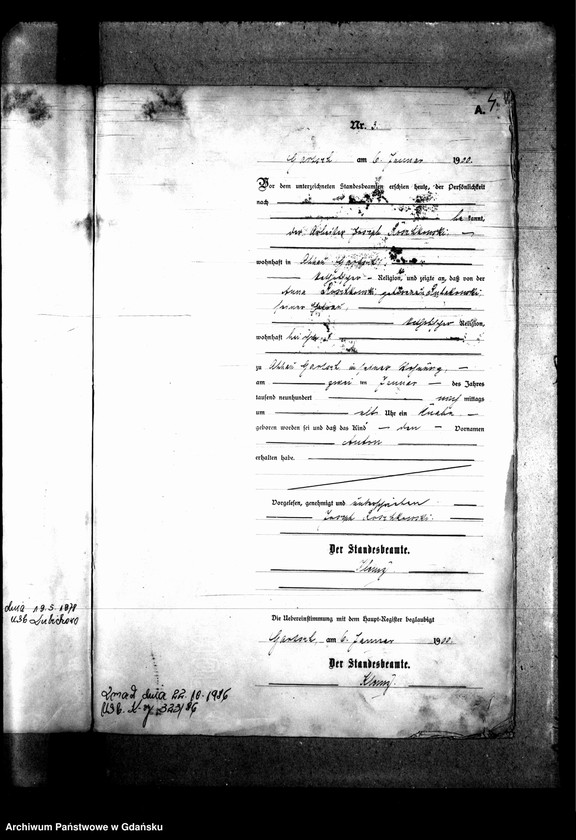 A. 4.
Nr. 3.
Gartsch am 6. Januar 1900.
Vor dem unterzeichneten Standesbeamten erschien heute, der Persönlichkeit
nach
be kannt,
der Arbeiter Joseph Roschkowski
wohnhaft in Abbau Gartsch
katholischer Religion, und zeigte an, daß von der
Anna Roschkowski geborenen
seiner Ehefrau,
katholischer Religion,
wohnhaft bei ihm
zu Abbau Gartsch in seiner Wohnung,
am zwei ten Januar des Jahres
tausend neunhundert nach mittags
um elf Uhr ein Knabe
geboren worden sei und daß das Kind den Vornamen
Anton
erhalten habe.
Vorgelesen, genehmigt und unterschrieben
Joseph Roschkowski.
Der Standesbeamte.
Die Uebereinstimmung mit dem Haupt-Register beglaubigt
Gartsch, am 6. Januar 1900.
Der Standesbeamte.
dnia 19.5.1978
USC
Zmarł dnia 22.10.1986
USC 323/86
Archiwum Państwowe w Gdańsku